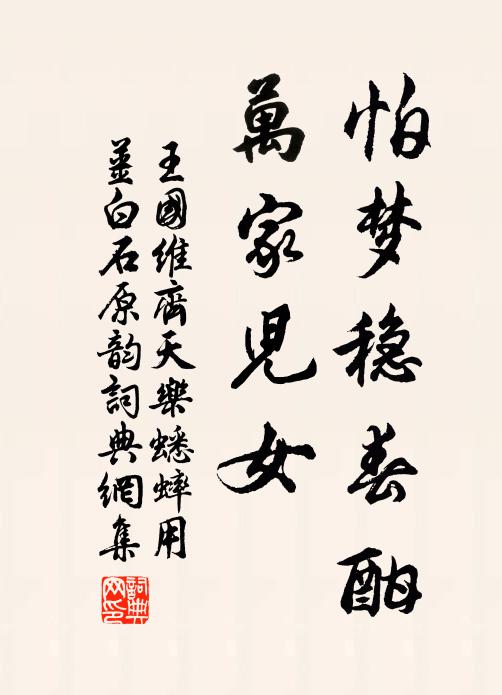 怕梦稳春酣
萬家児女
王國維齊天樂蟋蟀用
姜白石原韵詞典網集
詞典网印